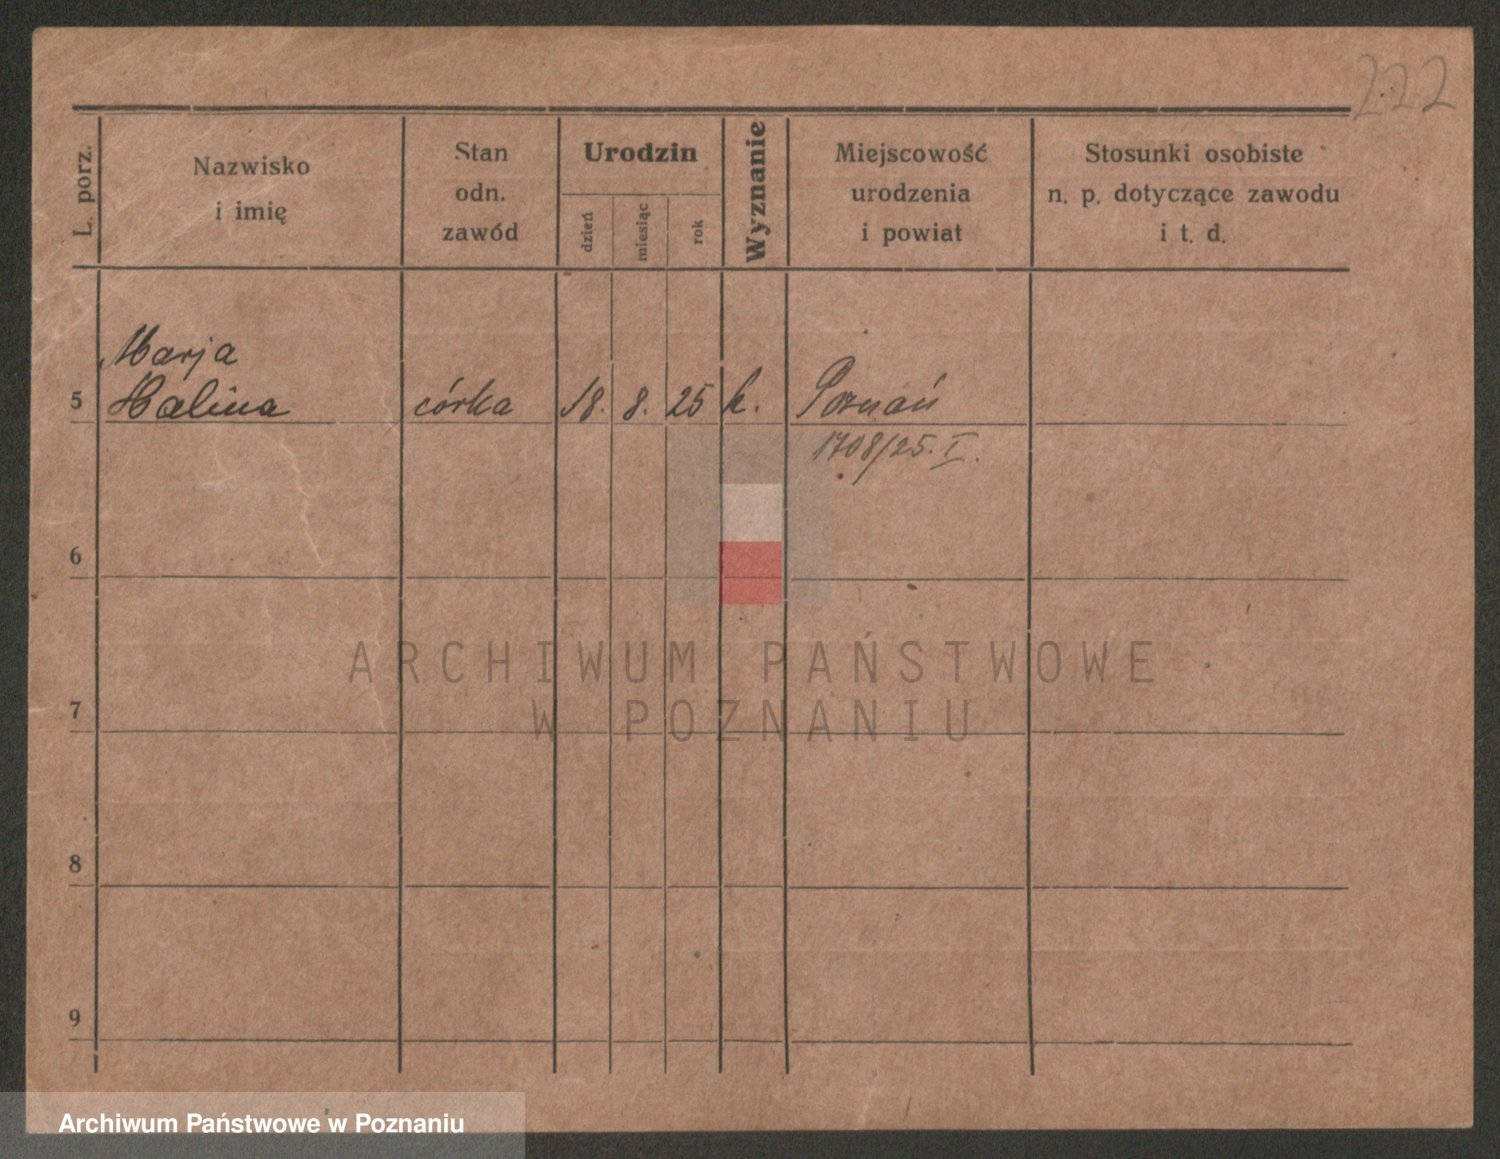 222
L. porz.
Nazwisko
i imię
Stan
odn.
zawód
Urodzin
dzień
miesiąc
rok
Wyznanie
Miejscowość
urodzenia
i powiat
Stosunki osobiste
n. p. dotyczące zawodu
i t. d.
Marja
5 Halina córka 18. 8. 25 k. Poznań
1708/25. I.
6
ARCHIWUM PAŃSTWOWE
W POZNANIU
7
8
9
Archiwum Państwowe w Poznaniu